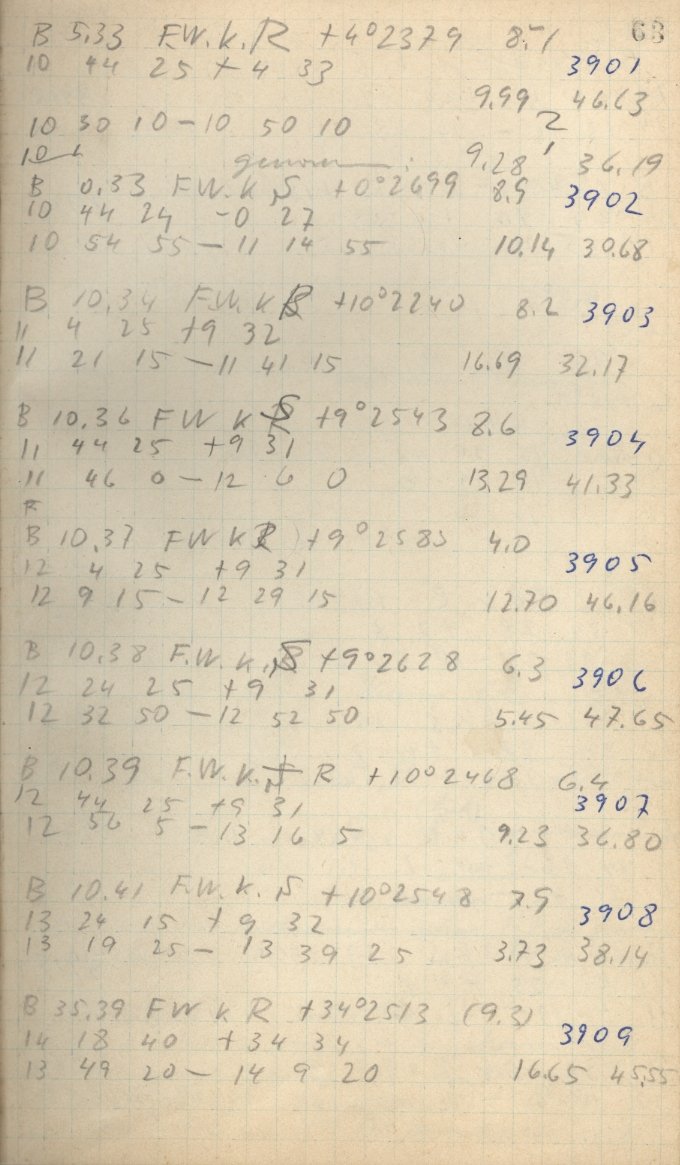 63
B 5.33 F.W.K.R +4°2379 8.1
10 44 25 +4 33 3901
9.99 46.63
10 30 10 – 10 50 10 2
9.28 ' 36.19
B 0.33 F.W.K S +0°2699 8.9 3902
10 44 24 -0 27
10 54 55 – 11 14 55 10.14 30.68
B 10.34 F.W.K +10°2240 8.2 3903
11 4 25 +9 32
11 21 15 – 11 41 15 16.69 32.17
B 10.36 F W K S +9°2543 8.6
11 44 25 +9 31 3904
11 46 0 – 12 6 0 13.29 41.33
B 10.37 F W K R +9°2585 4.0
12 4 25 +9 31 3905
12 9 15 – 12 29 15 12.70 46.16
B 10.38 F.W.K. S +9°2628 6.3
12 24 25 +9 31 3906
12 32 50 – 12 52 50 5.45 47.65
B 10.39 F.W.K. R +10°2468 6.4
12 44 25 +9 31 3907
12 56 5 – 13 16 5 9.23 36.80
B 10.41 F.W.K. S +10°2548 7.9
13 24 15 +9 32 3908
13 19 25 – 13 39 25 3.73 38.14
B 35.39 F W K R +34°2513 (9.3)
14 18 40 +34 34 3909
13 49 20 – 14 9 20 16.65 45.55